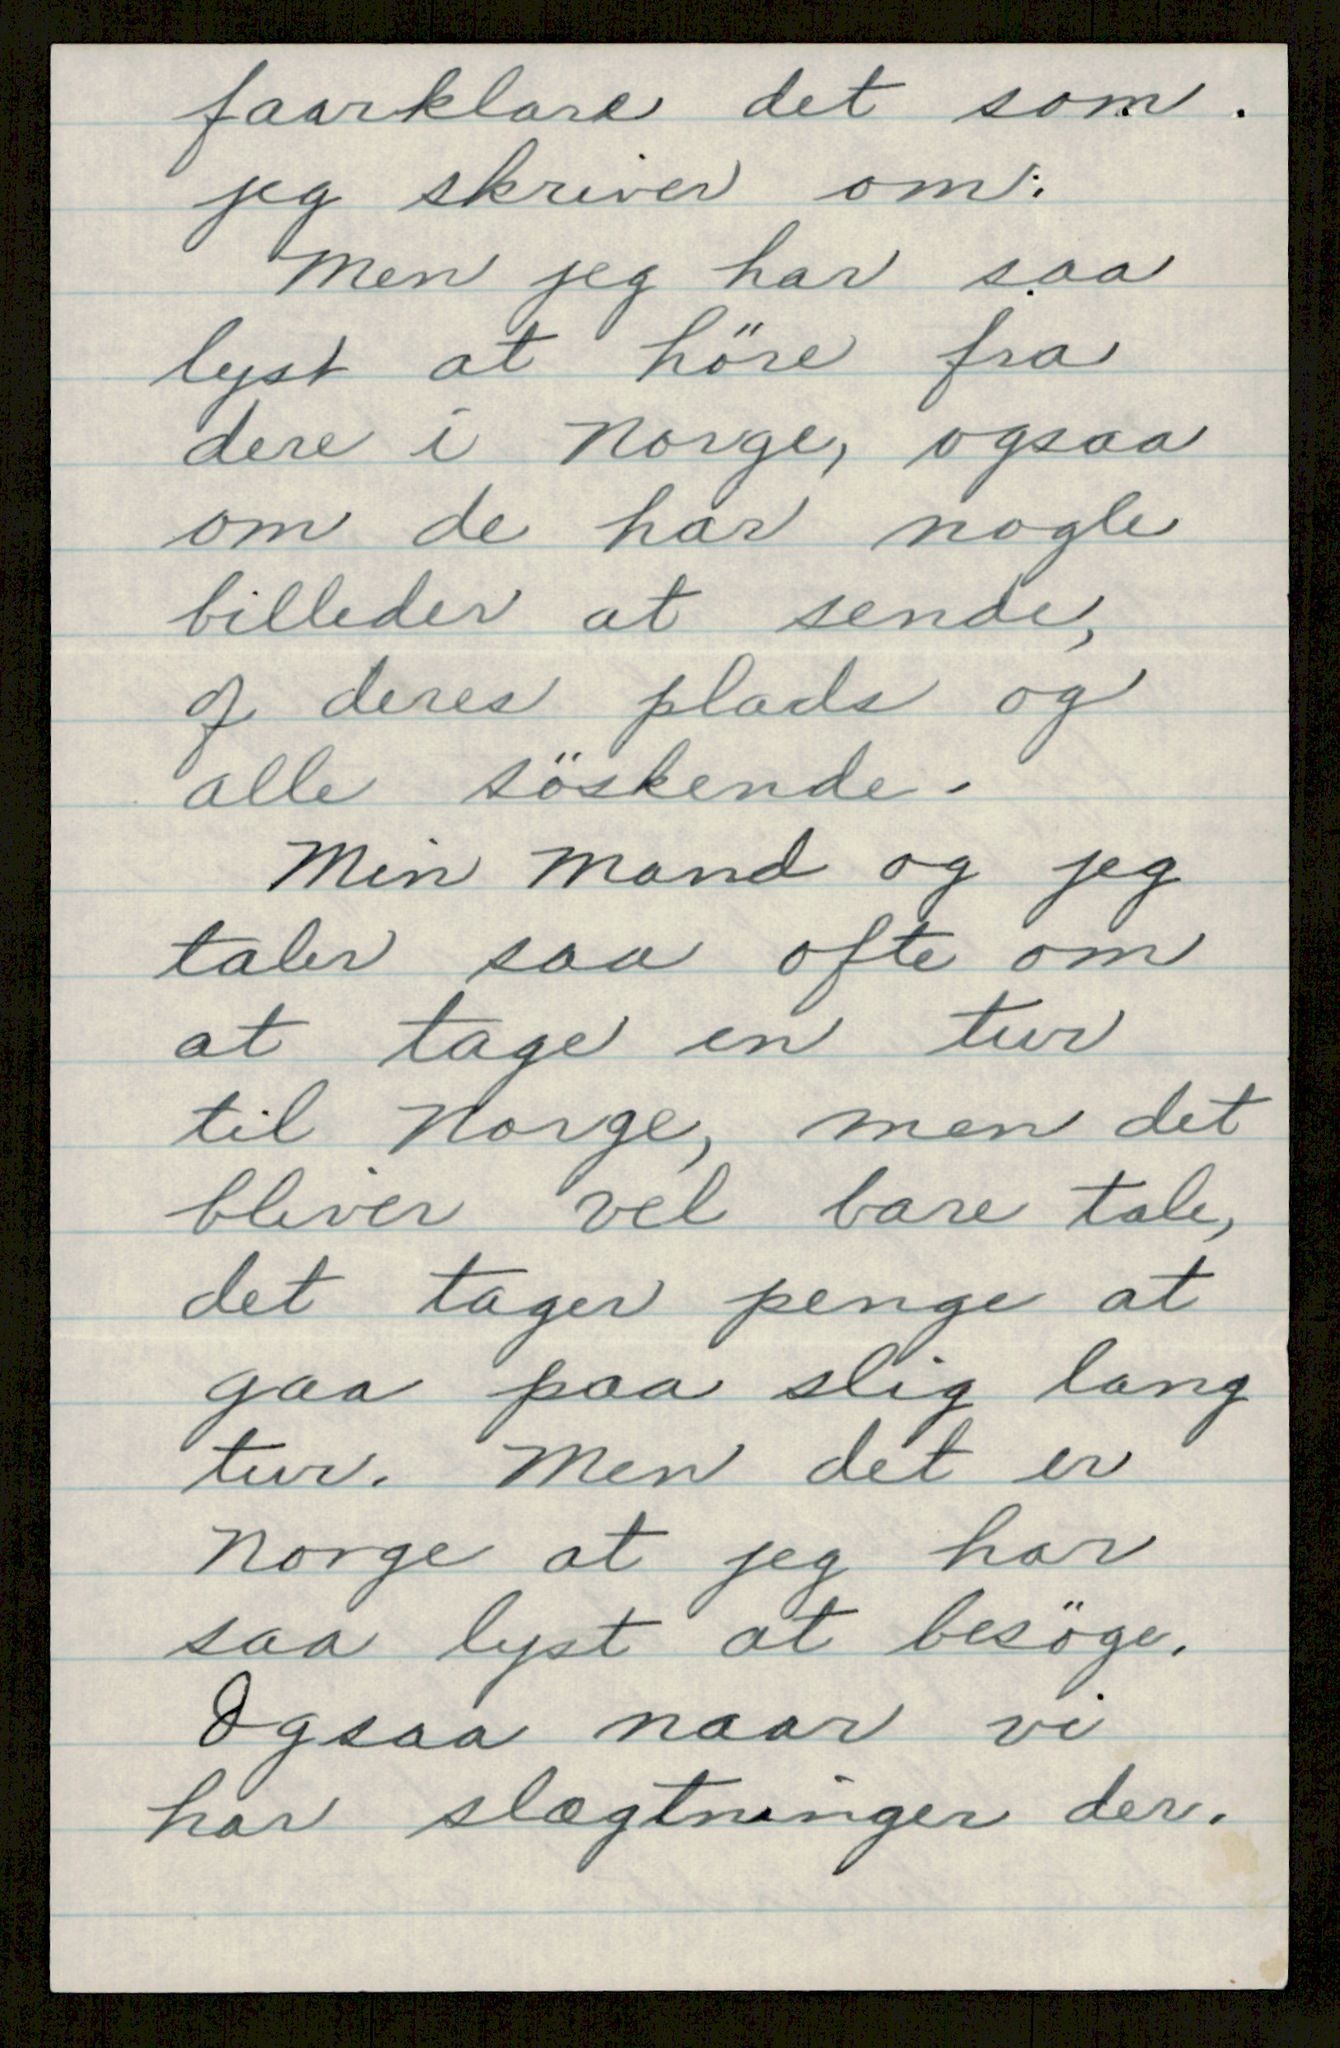 faarklare det som.
jeg skriver om.
Men jeg har saa
lyst at höre fra
dere i Norge, ogsaa
om de har nogle
billeder at sende,
of deres plads og
alle söskende.
Min Mand og jeg
taler saa ofte om
at tage en tur
til Norge, men det
bliver vel bare tale,
det tager penge at
gaa paa slig lang
tur. Men det er
Norge at jeg har
saa lyst at besöge.
Ogsaa naar vi
har slægtninger der.